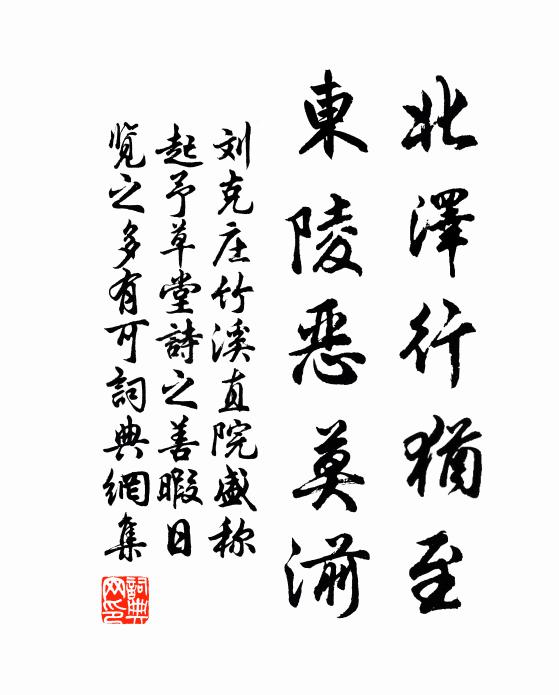 北澤行猶至
東陵惡莫湔
刘克庄竹溪直院盛称
起予草堂詩之善暇日
覽之多有可詞典網集
詞典網印